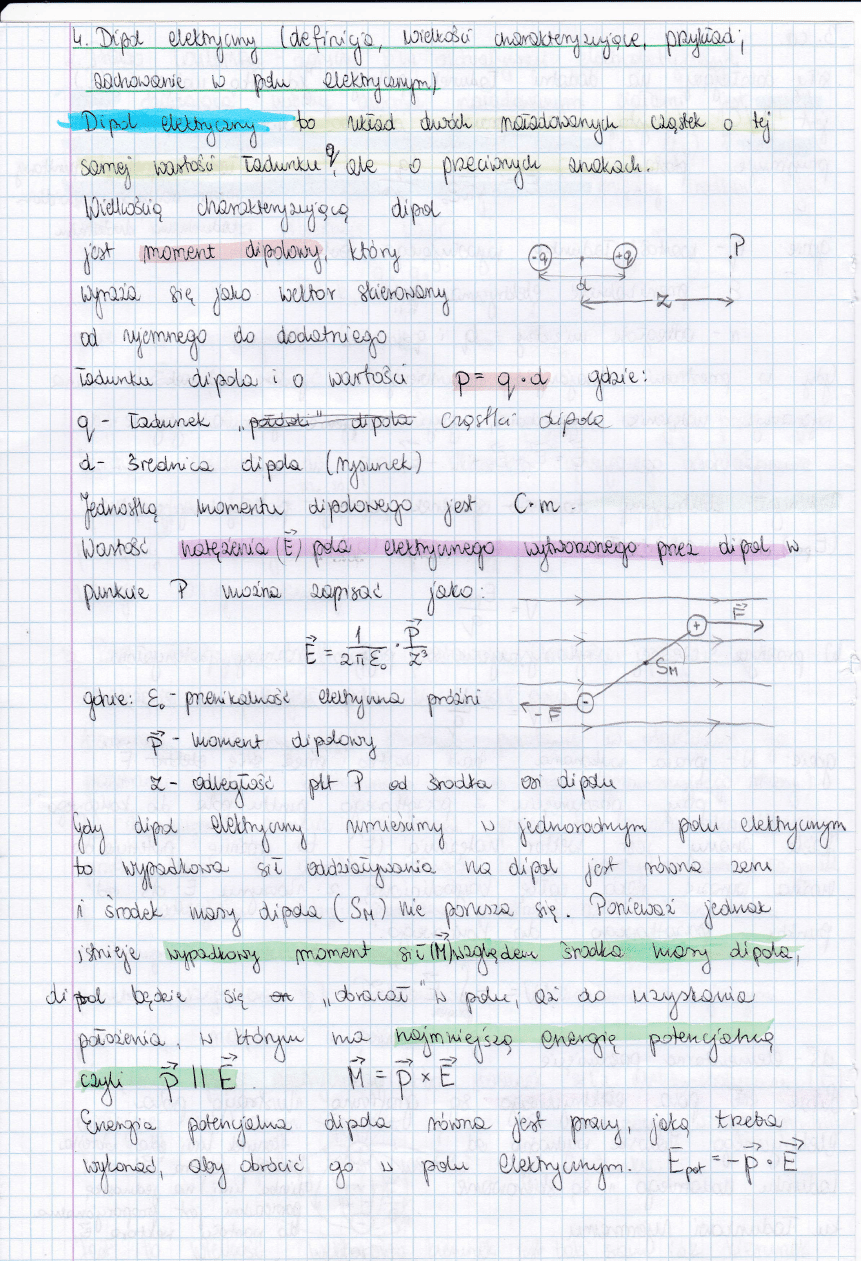 4. Dipol elektryczny (definicja, wielkości charakteryzujące, przykład,
zachowanie w polu elektrycznym)
Dipol elektryczny to układ dwóch naładowanych cząstek o tej
samej wartość ładunku q, ale o przeciwnych znakach.
Wielkością charakteryzującą dipol
jest moment dipolowy, który
wyraża się jako wektor skierowany
od ujemnego do dodatniego
ładunku dipola i o wartości p = q · d gdzie:
-q +q P
d
z
q - ładunek cząstki dipola
d - średnica dipola (rysunek)
Jednostką momentu dipolowego jest C·m.
Wartość natężenia (E⃗) pola elektrycznego wytworzonego przez dipol w
punkcie P można zapisać jako:
E⃗ = 1/(2πε₀) · p⃗/z³
gdzie: ε₀ - przenikalność elektryczna próżni
p⃗ - moment dipolowy
z - odległość pkt P od środka osi dipolu
+ F⃗
S_M
- -F⃗
Gdy dipol elektryczny umieścimy w jednorodnym polu elektrycznym
to wypadkowa sił oddziaływania na dipol jest równa zeru
i środek masy dipola (S_M) nie porusza się. Ponieważ jednak
istnieje wypadkowy moment sił (M⃗) względem środka masy dipola,
dipol będzie się „obracał" w polu, aż do uzyskania
położenia, w którym ma najmniejszą energię potencjalną
czyli p⃗ || E⃗. M⃗ = p⃗ × E⃗
Energia potencjalna dipola równa jest pracy, jaką trzeba
wykonać, aby obrócić go w polu elektrycznym. E_pot = -p⃗ · E⃗